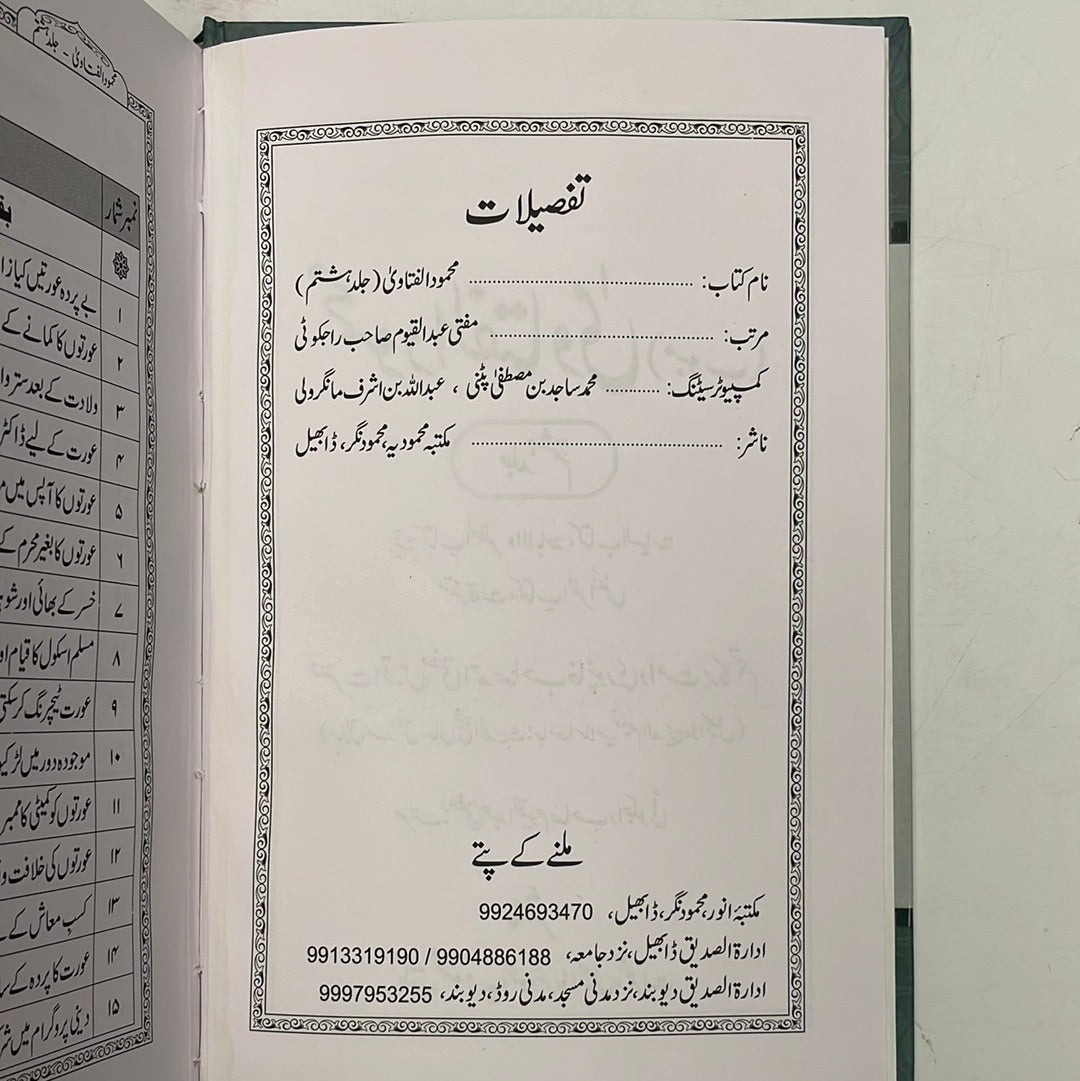 تفصیلات
نام کتاب: ........................................ محمود الفتاویٰ (جلد ہشتم)
مرتب: ........................................ مفتی عبدالقیوم صاحب راجکوٹی
کمپیوٹر سیٹنگ: ............ محمد ساجد بن مصطفیٰ پٹنی ، عبداللہ بن اشرف مانگرولی
ناشر: ............................................. مکتبہ محمودیہ، محمود نگر، ڈابھیل
ملنے کے پتے
مکتبۂ انور، محمود نگر، ڈابھیل، 9924693470
ادارۃ الصدیق ڈابھیل، نزد جامعہ، 9904886188 / 9913319190
ادارۃ الصدیق دیوبند، نزد مدنی مسجد، مدنی روڈ، دیوبند، 9997953255
محمود الفتاویٰ - جلد ہشتم
نمبر شمار
۱ بے پردہ عورتیں کیا
۲ عورتوں کا کمانے کے
۳ ولادت کے بعد ستر
۴ عورت کے لیے ڈاکٹر
۵ عورتوں کا آپس میں
۶ عورتوں کا بغیر محرم کے
۷ خسر کے بھائی اور
۸ مسلم اسکول کا قیام
۹ عورت ٹیچرنگ کر سکتی
۱۰ موجودہ دور میں
۱۱ عورتوں کو کمیٹی کا ممبر
۱۲ عورتوں کی خلافت و
۱۳ کسبِ معاش کے
۱۴ عورت کا پردہ کے
۱۵ دینی پروگرام میں